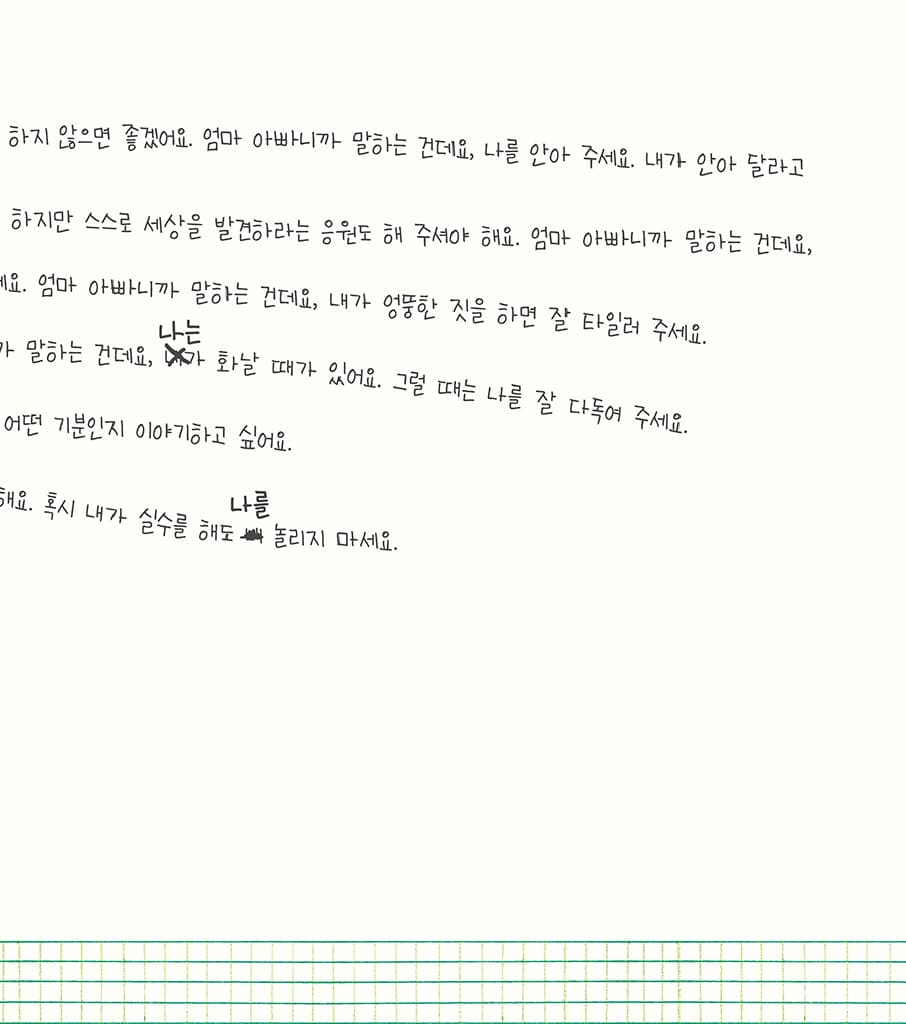 하지 않으면 좋겠어요. 엄마 아빠니까 말하는 건데요, 나를 안아 주세요. 내가 안아 달라고
하지만 스스로 세상을 발견하라는 응원도 해 주셔야 해요. 엄마 아빠니까 말하는 건데요,
엄마 아빠니까 말하는 건데요, 내가 엉뚱한 짓을 하면 잘 타일러 주세요.
나는
말하는 건데요, 화날 때가 있어요. 그럴 때는 나를 잘 다독여 주세요.
어떤 기분인지 이야기하고 싶어요.
나를
해요. 혹시 내가 실수를 해도 놀리지 마세요.